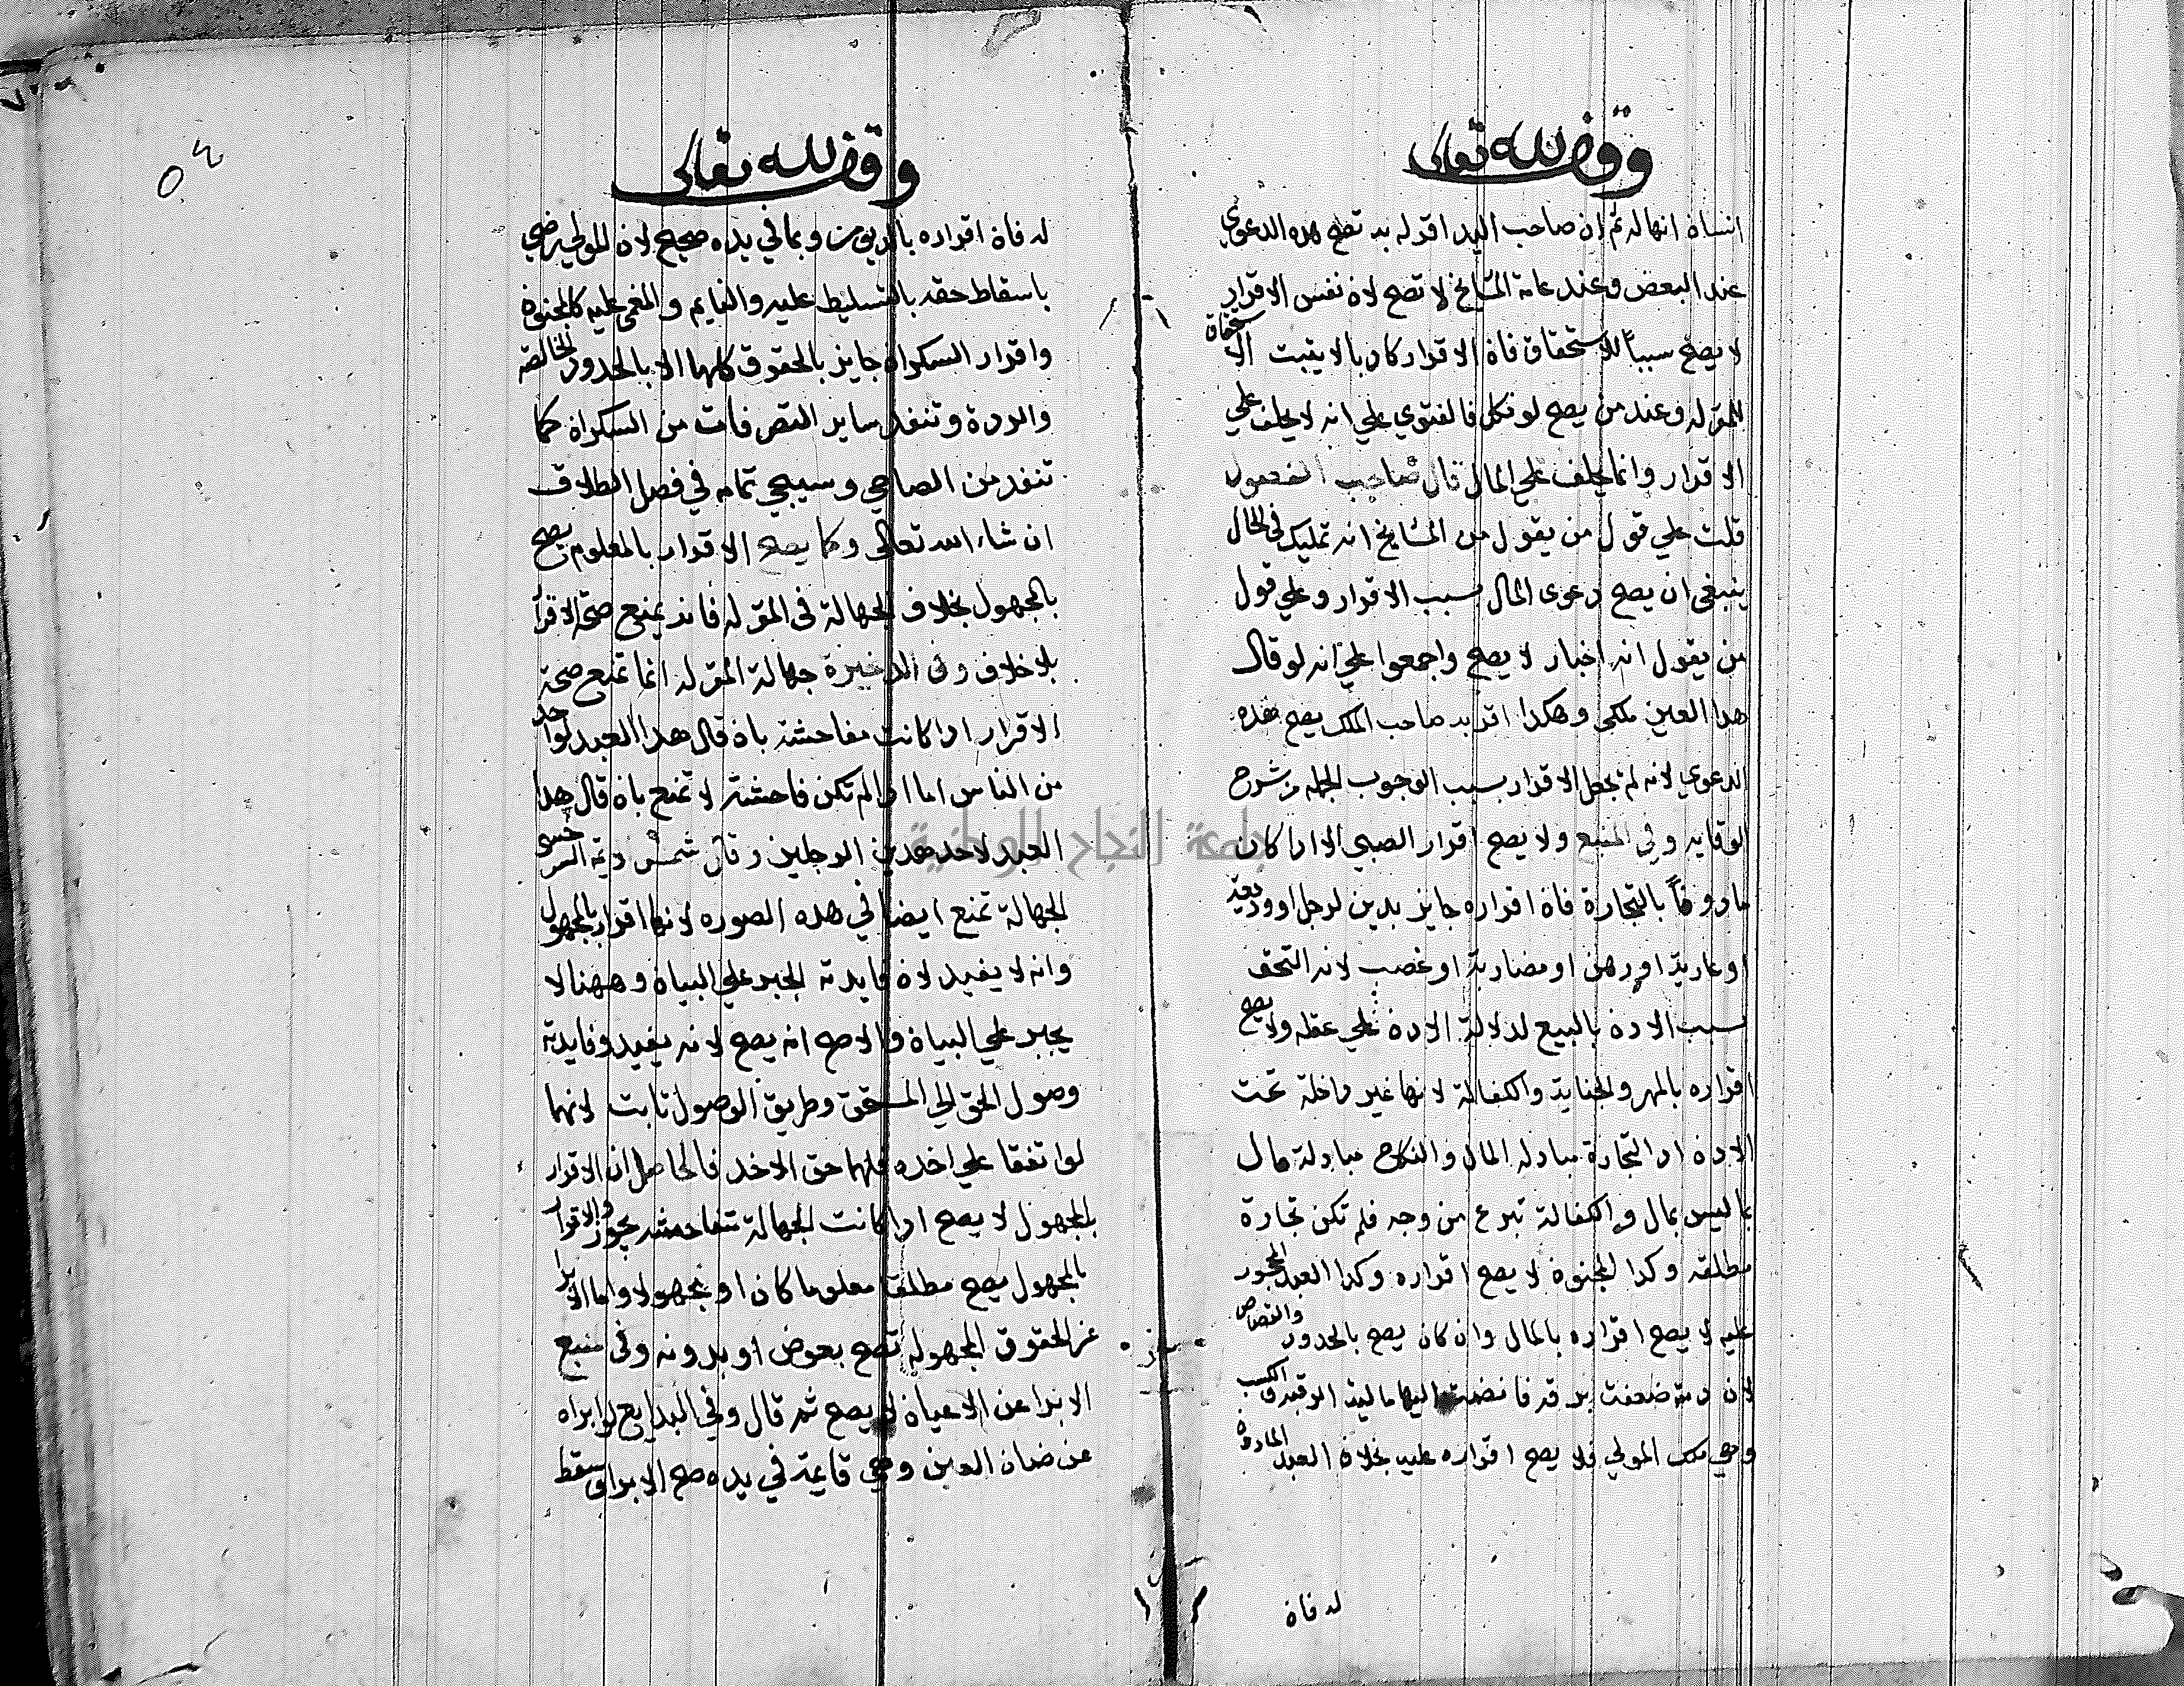 وقف لله تعالى
انسان انها له ثم ان صاحب اليد اقر له به تصح هده الدعوي
عند البعض وعند عامة المشايخ لا تصح لان نفس الاقرار
لا يصح سببا للاستحقاق فان الاقرار كاربا لا يثبت الاستحقاق
للمقر له وعند من يصح لو نكل فالفتوي علي انه لا يحلف علي
الاقرار وانما يحلف علي المال قال صاحب الفصول
قلت علي قول من يقول من المشايخ انه تمليك في الحال
ينبغي ان يصح دعوى المال بسبب الاقرار وعلي قول
من يقول انه اخبار لا يصح واجمعوا علي انه لو قال
هدا العين ملكى وهكدا اقر به صاحب الملك يصح هده
الدعوي لانه لم يجعل الاقرار بسبب الوجوب الجمله من شرح
الوقايه وفي المنبع ولا يصح اقرار الصبي الا ادا كان
مادونا بالتجارة فان اقراره جايز بدين لرجل او وديعة
او عارية او رهن او مضاربة او غصب لانه التحق
بسبب الادن بالبيع لدلالة الادن علي عقله ولا يصح
اقراره بالمهر والجناية والكفالة لانها غير داخلة تحت
الادن اد التجارة مبادله المال والنكاح مبادلة مال
بما ليس بمال والكفالة تبرع من وجه فلم تكن تجارة
مطلقه وكدا المجنون لا يصح اقراره وكدا العبد المحجور
عليه لا يصح اقراره بالمال وان كان يصح بالحدود والقصاص
لان دمته ضعفت برقه فانضمت اليها مالية الرقبة والكسب
وهي ملك المولي فلا يصح اقراره عليه بخلاف العبد المادون
له فان
وقف لله تعالى
٥٤
له فان اقراره بالديون وبما في يده صحيح لان المولي رضي
باسقاط حقه بالتسليط عليه والنايم والمغمى عليه كالمجنون
واقرار السكران جايز بالحقوق كلها الا بالحدود الخالصه
والردة وتنفد ساير التصرفات من السكران كما
تنفد من الصاحي وسيجي تمامه في فصل الطلاق
ان شاء الله تعالى وكما يصح الاقرار بالمعلوم يصح
بالمجهول بخلاف الجهالة فى المقر له فانه يمنع صحة الاقرار
بلا خلاف وفى الدخيرة جهالة المقر له انما تمنع صحة
الاقرار ادا كانت متفاحشة بان قال هدا العبد لواحد
من الناس اما ادا لم تكن فاحشة لا تمنع بان قال هدا
العبد لاحد هدين الرجلين وقال شمس الايمة السرخسى
الجهالة تمنع ايضا في هده الصوره لانها اقرار بالمجهول
وانه لا يفيد لان فايدته الجبر علي البيان وههنا لا
يجبر علي البيان والاصح انه يصح لانه يفيد وفايدته
وصول الحق الي المستحق وطريق الوصول ثابت لانهما
لو اتفقا علي اخده فلهما حق الاخد فالحاصل ان الاقرار
بالمجهول لا يصح ادا كانت الجهالة متفاحشه يجوز والاقرار
بالمجهول يصح مطلقا معلوما كان او مجهولا واما الابرا
عن الحقوق المجهوله تصح بعوض او بدونه وفى منبع
الابرا عن الاعيان لا يصح ثم قال وفي البدايع لو ابراه
عن ضمان العين وهي قايمة في يده صح الابرا وسقط